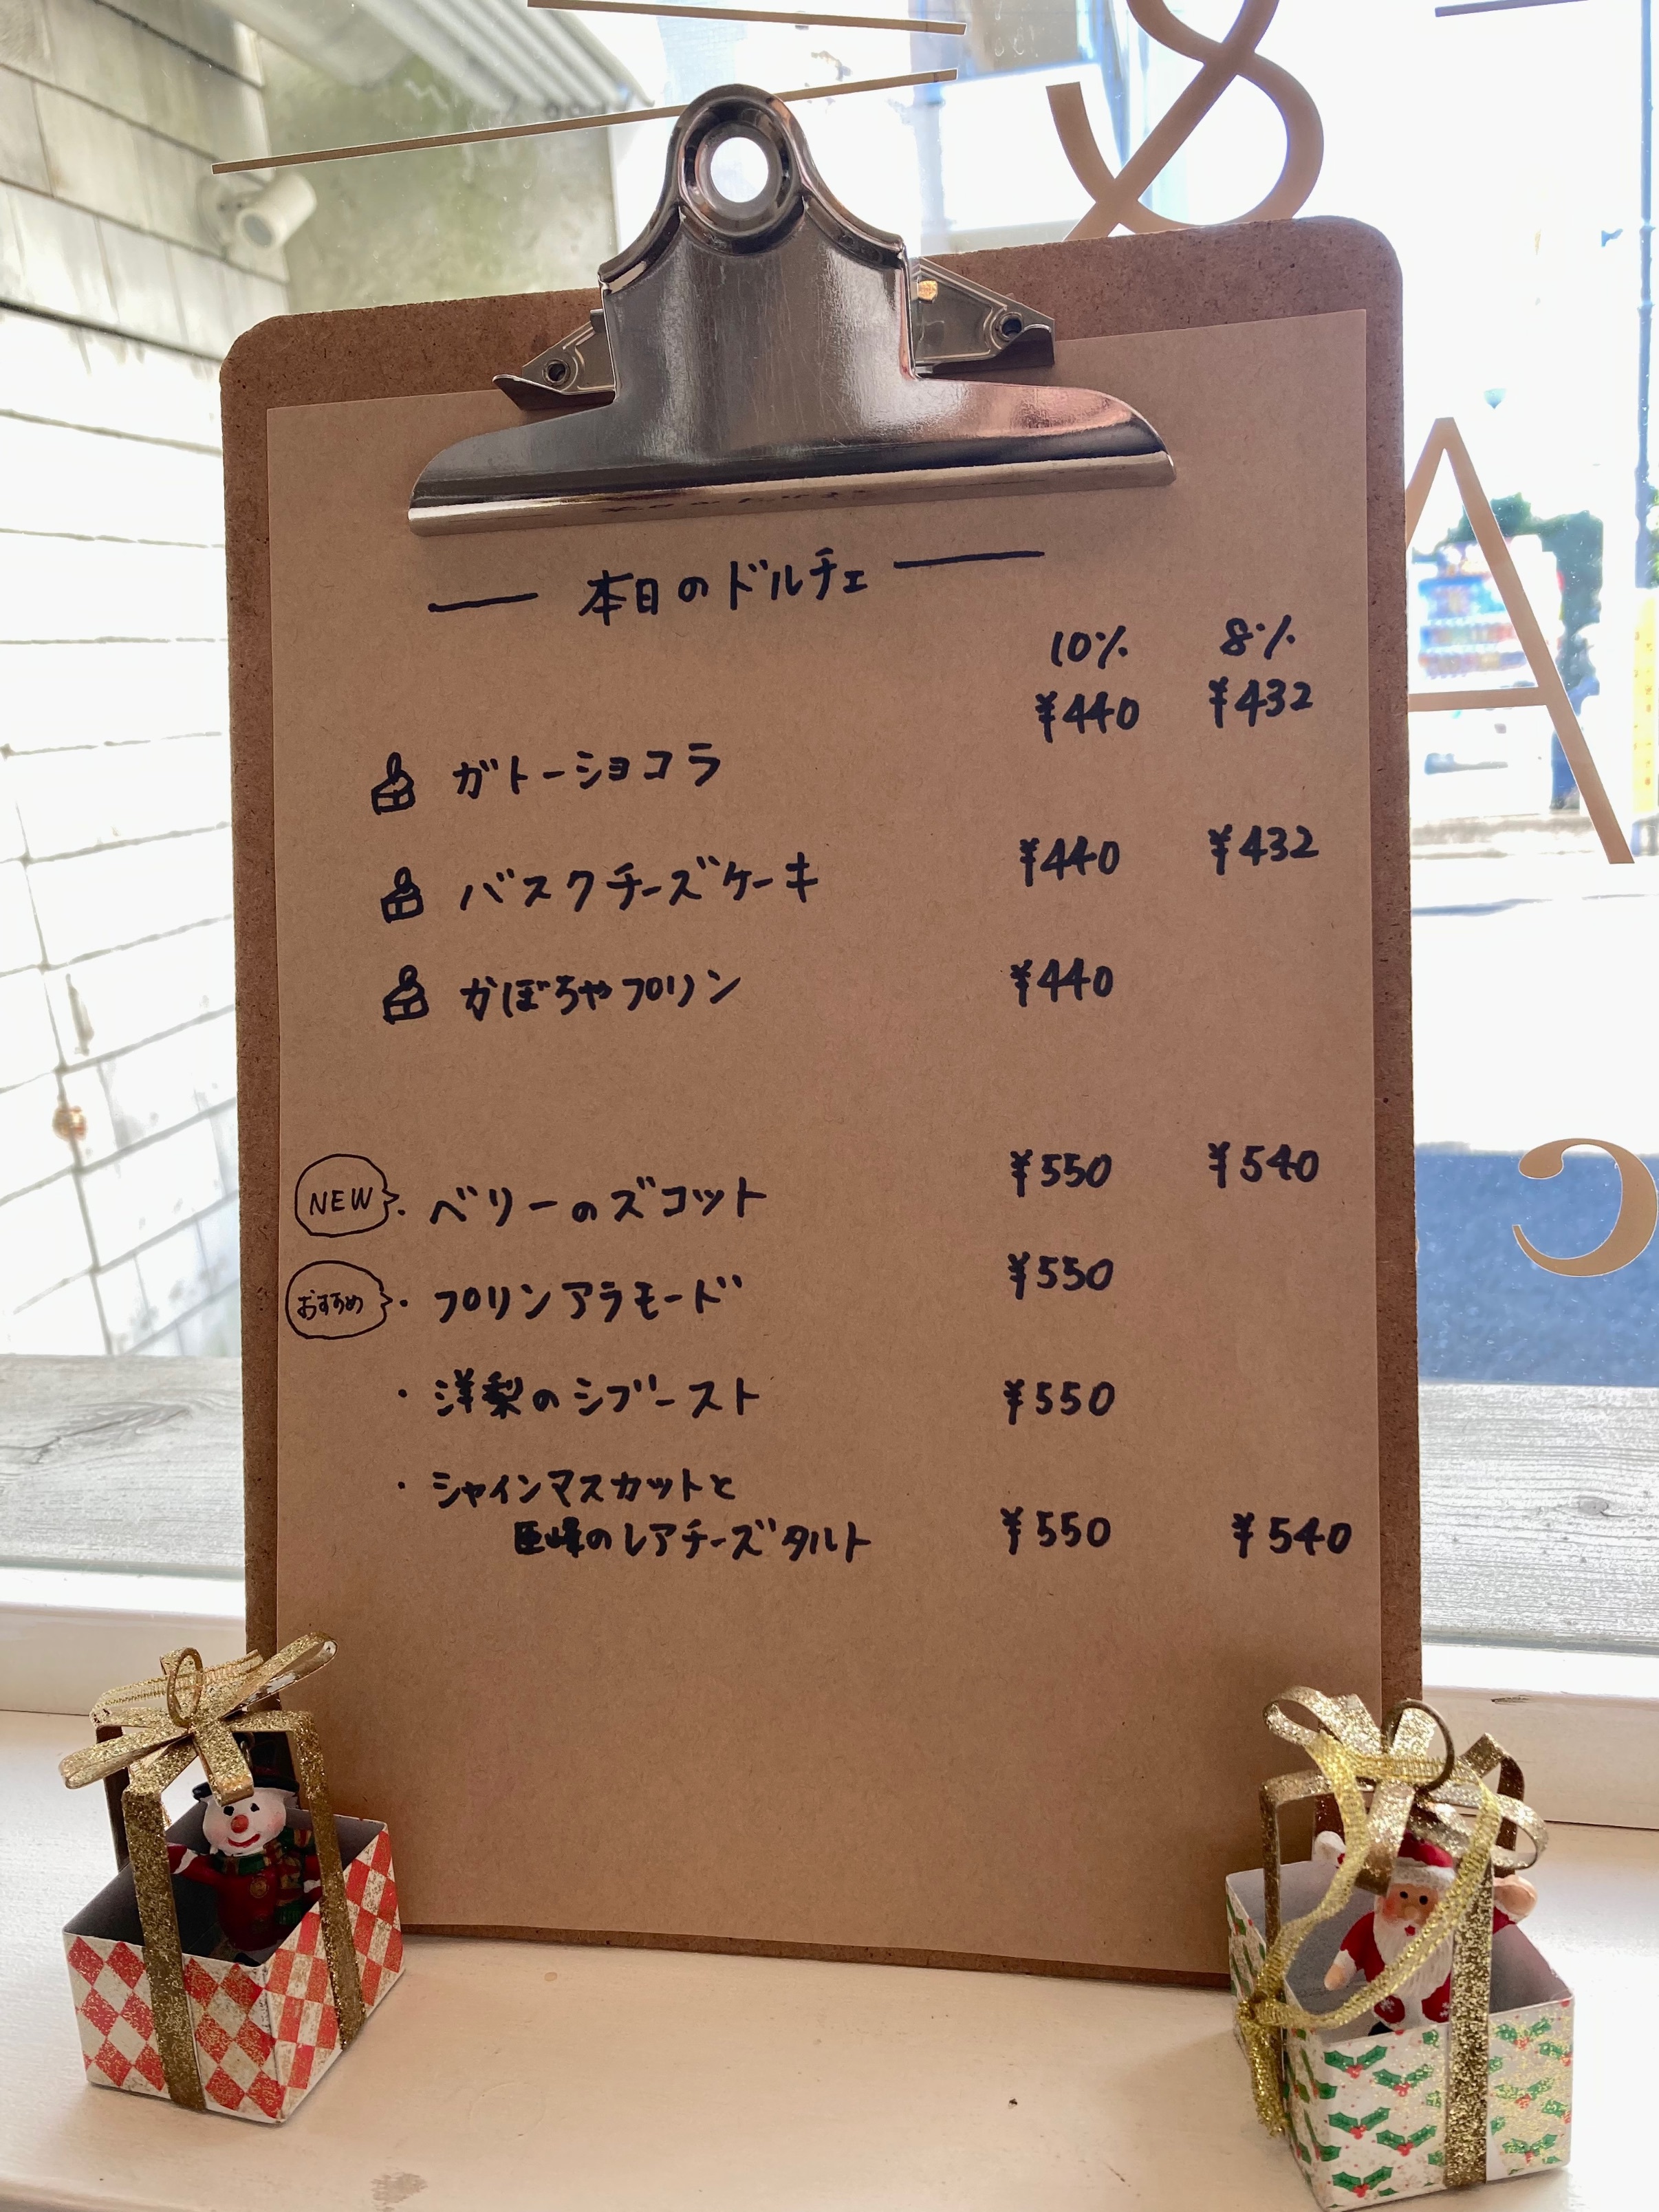 &
A
C
本日のドルチェ
10% 8%
ガトーショコラ ¥440 ¥432
バスクチーズケーキ ¥440 ¥432
かぼちゃプリン ¥440
NEW ・ベリーのズコット ¥550 ¥540
おすすめ ・プリンアラモード ¥550
・洋梨のシブースト ¥550
・シャインマスカットと
巨峰のレアチーズタルト ¥550 ¥540